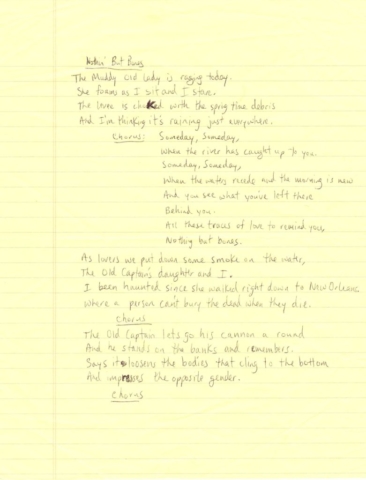 Nothin' But Bones
The Muddy Old Lady is raging today.
She foams as I sit and I stare.
The levee is choked with the spring time debris
And I'm thinking it's raining just everywhere.
Chorus: Someday, Someday,
When the river has caught up to you.
Someday, Someday,
When the waters recede and the morning is new
And you see what you've left there
Behind you.
Are these traces of love to remind you,
Nothing but bones.
As lovers we put down some smoke on the water,
The Old Captain's daughter and I.
I been haunted since she walked right down to New Orleans
Where a person can't bury the dead when they die.
Chorus
The Old Captain lets go his cannon a round
And he stands on the banks and remembers.
Says it loosens the bodies that cling to the bottom
And impresses the opposite gender.
Chorus